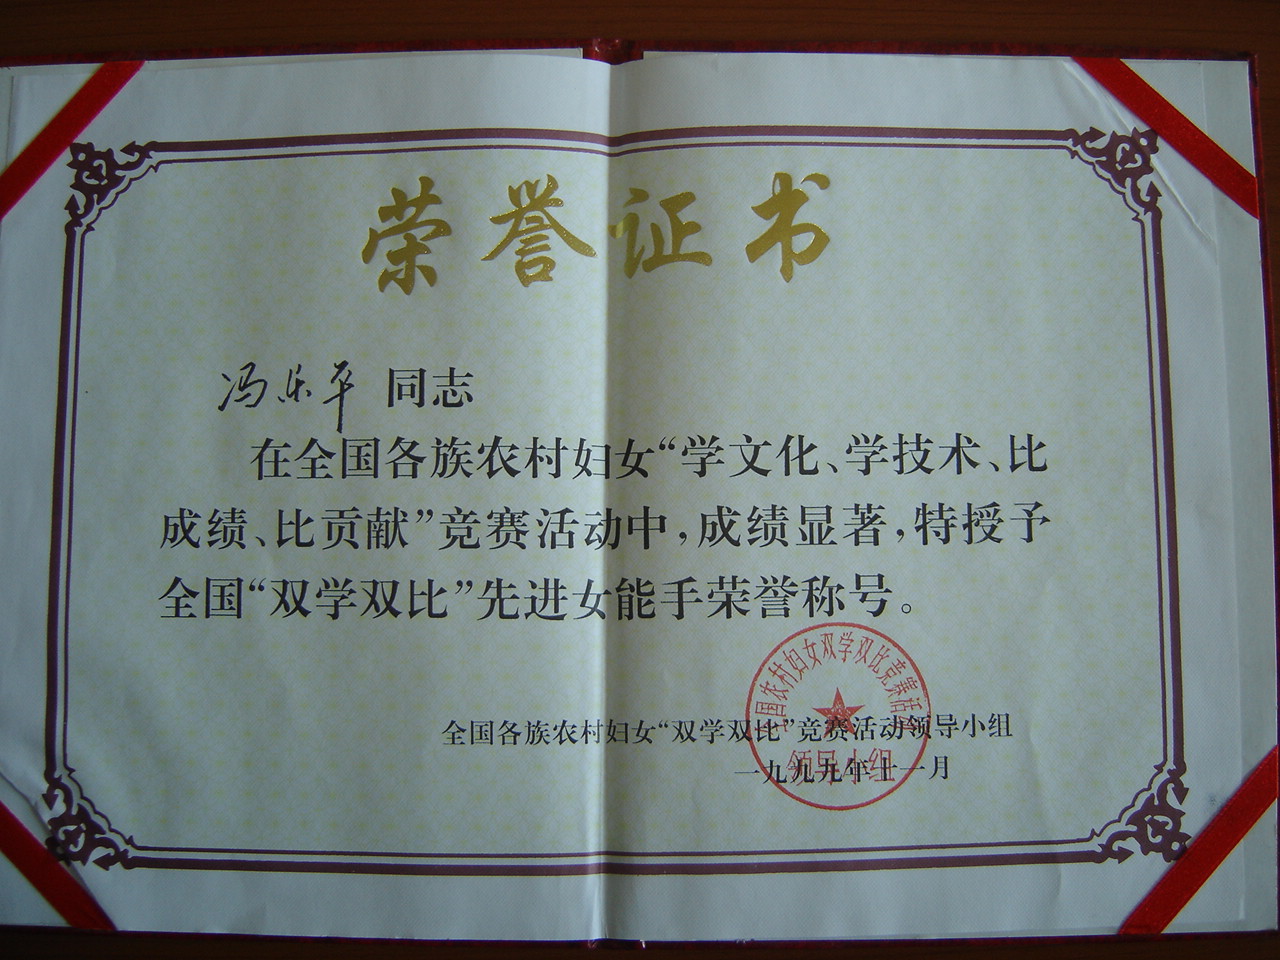 荣誉证书
冯乐平 同志
在全国各族农村妇女“学文化、学技术、比
成绩、比贡献”竞赛活动中，成绩显著，特授予
全国“双学双比”先进女能手荣誉称号。
全国农村妇女双学双比竞赛活动
领导小组
全国各族农村妇女“双学双比”竞赛活动领导小组
一九九九年十一月